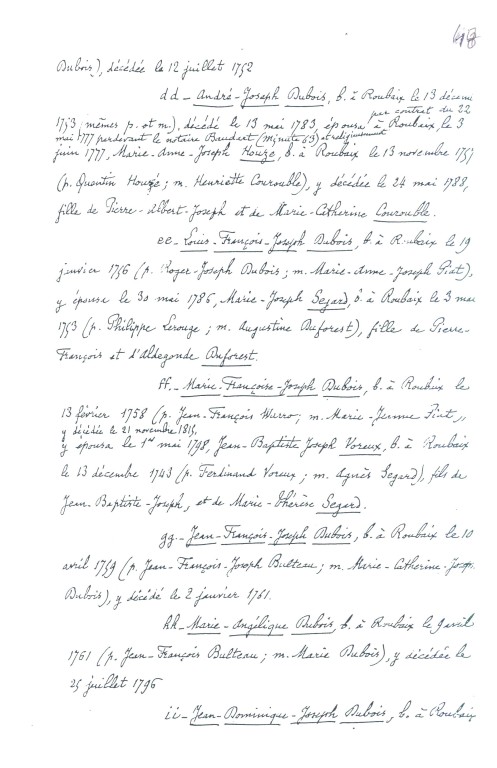 48
Dubois), décédée le 12 juillet 1752
dd - André-Joseph Dubois, b. à Roubaix le 13 décembre
1753 (mêmes p. et m.), décédé le 13 mai 1783, épousa à Roubaix, le 3
par contrat du 22
mai 1777 pardevant le notaire Baudart (minute 63) et religieusement
juin 1777, Marie-Anne-Joseph Houzé, b. à Roubaix le 13 novembre 1757
(p. Quentin Houzé; m. Henriette Courouble), y décédée le 24 mai 1788,
fille de Pierre-Albert-Joseph et de Marie-Catherine Courouble.
ee - Louis-François-Joseph Dubois, b. à Roubaix le 19
janvier 1756 (p. Roger-Joseph Dubois; m. Marie-Anne-Joseph Piat),
y épousa le 30 mai 1786, Marie-Joseph Segard, b. à Roubaix le 3 mai
1753 (p. Philippe Lerouge; m. Augustine Duforest), fille de Pierre-
François et d'Aldegonde Duforest.
ff. - Marie-Françoise-Joseph Dubois, b. à Roubaix le
13 février 1758 (p. Jean-François Wurro; m. Marie-Jeanne Piat),
y décédée le 21 novembre 1815,
y épousa le 1er mai 1798, Jean-Baptiste Joseph Voreux, b. à Roubaix
le 13 décembre 1743 (p. Ferdinand Voreux; m. Agnès Segard), fils de
Jean-Baptiste-Joseph, et de Marie-Thérèse Segard.
gg. - Jean-François-Joseph Dubois, b. à Roubaix le 10
avril 1759 (p. Jean-François-Joseph Bulteau; m. Marie-Catherine-Josep
Dubois), y décédé le 2 janvier 1761.
hh - Marie-Angélique Dubois, b. à Roubaix le 9 avril
1761 (p. Jean-François Bulteau; m. Marie Dubois), y décédée le
25 juillet 1796
ii - Jean-Dominique-Joseph Dubois, b. à Roubaix